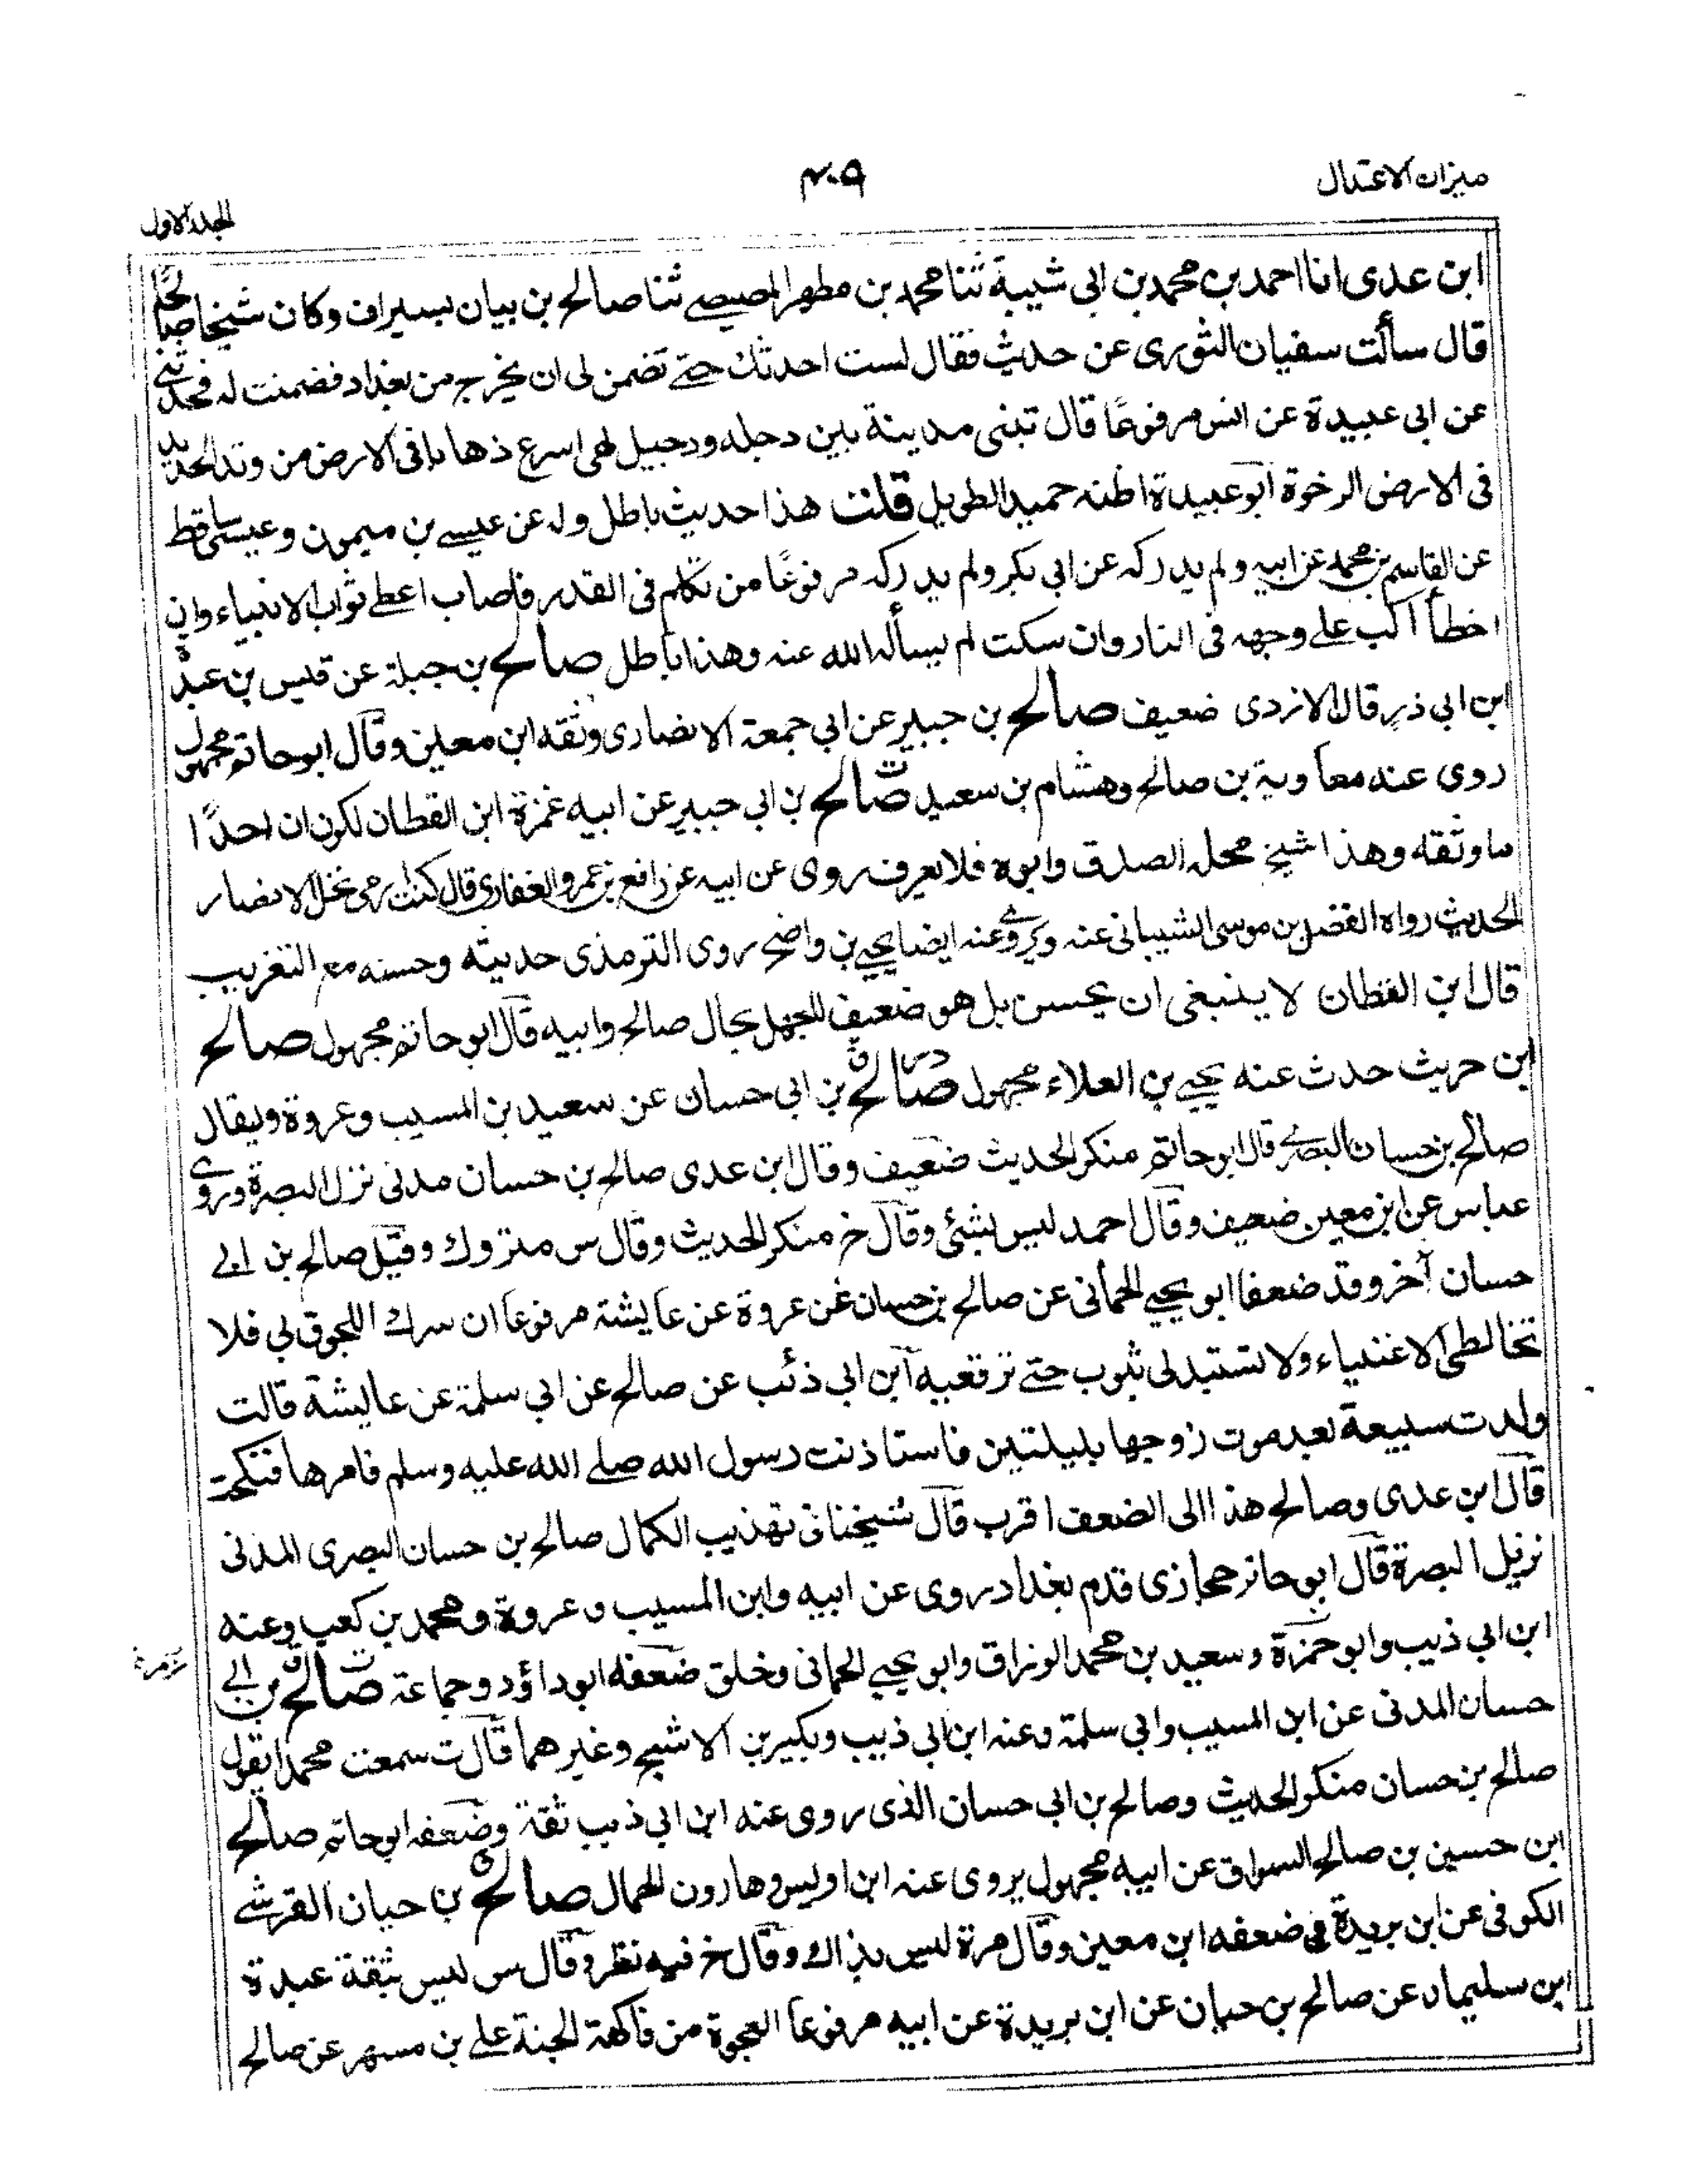 ميزان الاعتدال
٤٠٩
المجلد الاول
ابن عدى انا احمد بن محمد بن ابى شيبة ثنا محمد بن مطهر المصيصے ثنا صالح بن بيان بسيراف وكان شيخا صالحًا
قال سألت سفيان الثورى عن حديث فقال لست احدثك حتے تضمن لى ان يخرج من بغداد فضمنت له فحدثنے
عن ابى عبيدة عن انس مرفوعًا قال تبنى مدينة بين دجله ودجيل لهى اسرع ذهابا فى الارض من وتد الحديد
فى الارض الرخوة ابو عبيدة اظنه حميد الطويل قلت هذا حديث باطل وله عن عيسے بن ميمون وعيسى ساقط
عن القاسم بن محمد عن ابيه ولم يدركه عن ابى بكر ولم يدركه مرفوعًا من تكلم فى القدر فاصاب اعطے ثواب الانبياء وان
اخطأ اكب علے وجهه فى النار وان سكت لم يسأله الله عنه وهذا باطل صالح بن جبلة عن قيس بن عبد
ابن ابى ذر قال الازدى ضعيف صالح بن جبير عن ابي جمعة الانصارى وثقه ابن معين وقال ابو حاتم مجهول
روى عنه معاوية بن صالح وهشام بن سعيد ت صالح بن ابي جبير عن ابيه غمزة ابن القطان لكون ان احدًا
ما وثقه وهذا شيخ محله الصدق وابوه فلا يعرف روى عن ابيه عن رافع بن عمرو الغفارى قال كنت ارمى نخل الانصار
الحديث رواه الفضل بن موسى الشيبانى عنه ويروى عنه ايضا يحيے بن واضح روى الترمذى حديثه وحسنه مع التغريب
قال ابن القطان لا ينبغى ان يحسن بل هو ضعيف للجهل بحال صالح وابيه قال ابو حاتم مجهول صالح
ابن حريث حدث عنه يحيے بن العلاء مجهول صالح بن ابى حسان عن سعيد بن المسيب وعروة ويقال
صالح بن حسان البصرى قال ابو حاتم منكر الحديث ضعيف وقال ابن عدى صالح بن حسان مدنى نزل البصرة وروى
عباس عن ابن معين ضعيف وقال احمد ليس بشئ وقال خ منكر الحديث وقال س متروك وقيل صالح بن ابے
حسان آخر وقد ضعفا ابو يحيے الحمانى عن صالح بن حسان عن عروة عن عايشة مرفوعا ان سرك اللحوق بي فلا
تخالطى الاغنياء ولا تستبدلى ثوب حتے ترقعيه ابن ابي ذئب عن صالح عن ابي سلمة عن عايشة قالت
ولدت سبيعة بعد موت زوجها بليلتين فاستاذنت رسول الله صلے الله عليه وسلم فامرها فنكحت
قال ابن عدى وصالح هذا الى الضعف اقرب قال شيخنا فى تهذيب الكمال صالح بن حسان البصرى المدنى
نزيل البصرة قال ابو حاتم حجازى قدم بغداد روى عن ابيه وابن المسيب وعروة ومحمد بن كعب وعنه
ابن ابي ذيب وابو حمزة وسعيد بن محمد الوراق وابو يحيے الحمانى وخلق ضعفه ابو داؤد وجماعة صالح بن ابے
حسان المدنى عن ابن المسيب وابي سلمة وعنه ابن ابي ذيب وبكير بن الاشج وغيرهما قال ت سمعت محمدا يقول
صالح بن حسان منكر الحديث وصالح بن ابى حسان الذى روى عنه ابن ابي ذيب ثقة وضعفه ابو حاتم صالح
ابن حسين بن صالح السواق عن ابيه مجهول يروى عنه ابن اويس وهارون الحمال صالح بن حيان القرشے
الكوفى عن ابن بريدة ضعفه ابن معين وقال مرة ليس بذاك وقال خ فيه نظر وقال س ليس بثقة عبدة
ابن سليمان عن صالح بن حيان عن ابن بريدة عن ابيه مرفوعا العجوة من فاكهة الجنة علے بن مسهر عن صالح